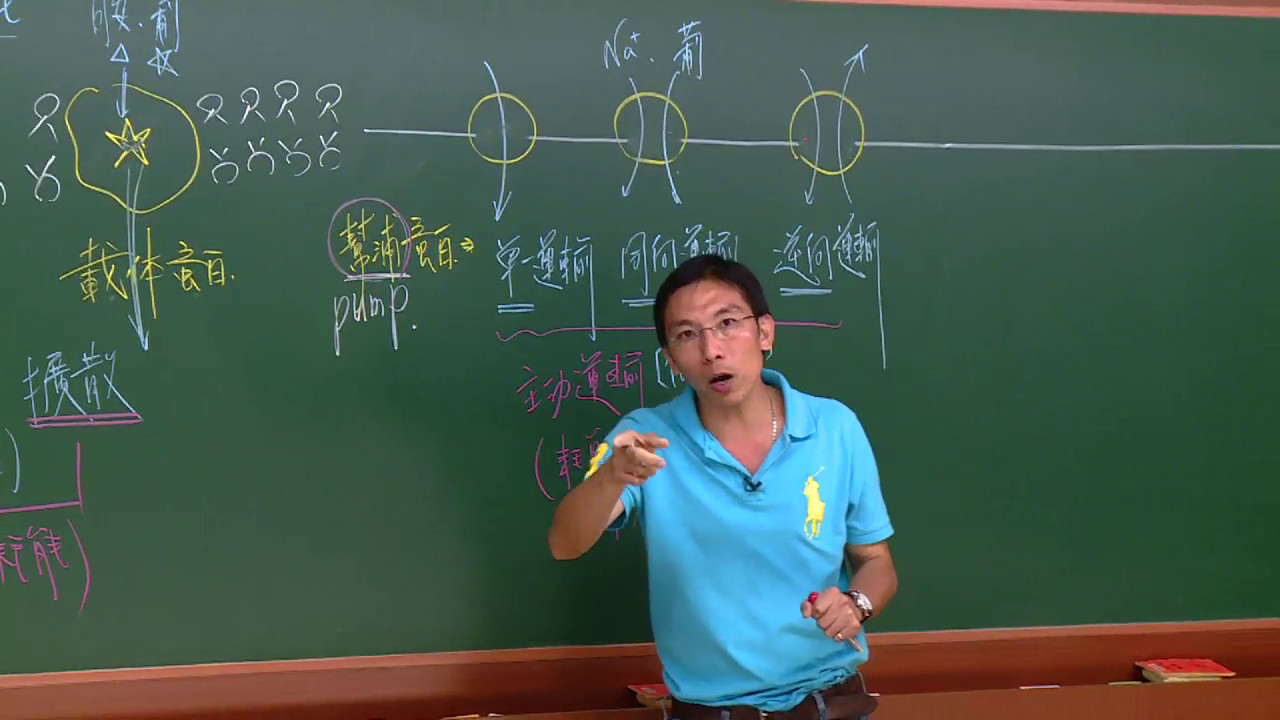 胺.葡
Na⁺.葡
載体蛋白.
幫浦蛋白⇒
pump.
單一運輸
同向運輸
逆向運輸
擴散
主動運輸
(耗
耗能)